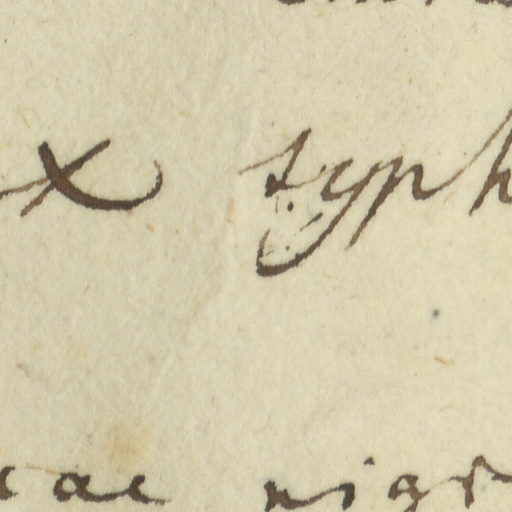 x syph
cae nigr